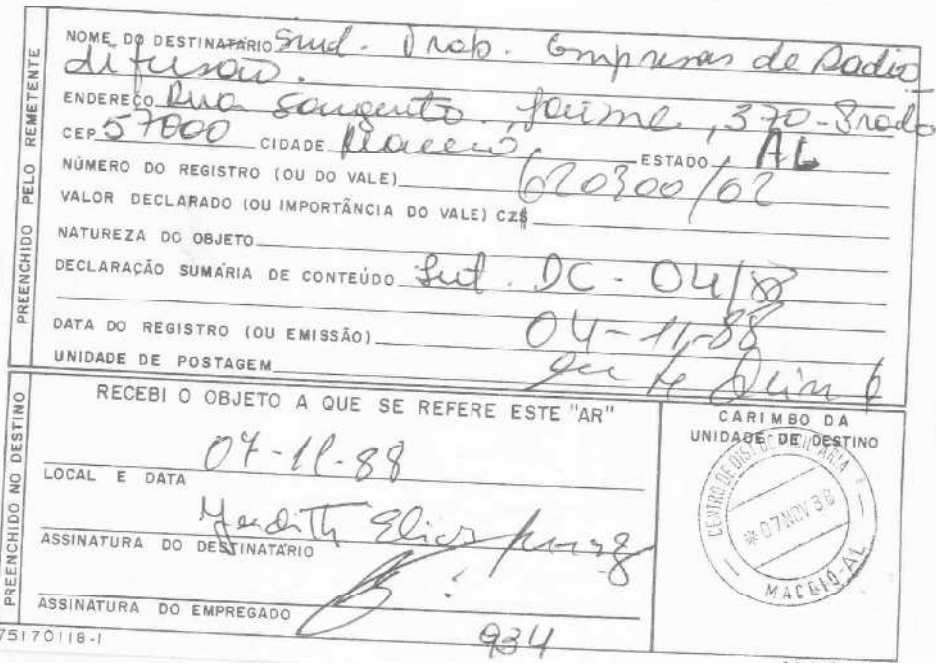 PREENCHIDO PELO REMETENTE
NOME DO DESTINATÁRIO Sind. Trab. Empresas de Radio
difusão.
ENDEREÇO Rua Sargento Jaime, 370 - Prado
CEP 57000 CIDADE Maceió, ESTADO AL
NÚMERO DO REGISTRO (OU DO VALE) 620300/02
VALOR DECLARADO (OU IMPORTÂNCIA DO VALE) CZ$
NATUREZA DO OBJETO
DECLARAÇÃO SUMÁRIA DE CONTEÚDO DC - 04/88
DATA DO REGISTRO (OU EMISSÃO) 04-11-88
UNIDADE DE POSTAGEM
PREENCHIDO NO DESTINO
RECEBI O OBJETO A QUE SE REFERE ESTE "AR"
07-11-88
LOCAL E DATA
ASSINATURA DO DESTINATÁRIO
ASSINATURA DO EMPREGADO
934
CARIMBO DA
UNIDADE DE DESTINO
CENTRO DE DIST. DOMICILIÁRIA
07 NOV 88
MACEIÓ-AL
75170118-1